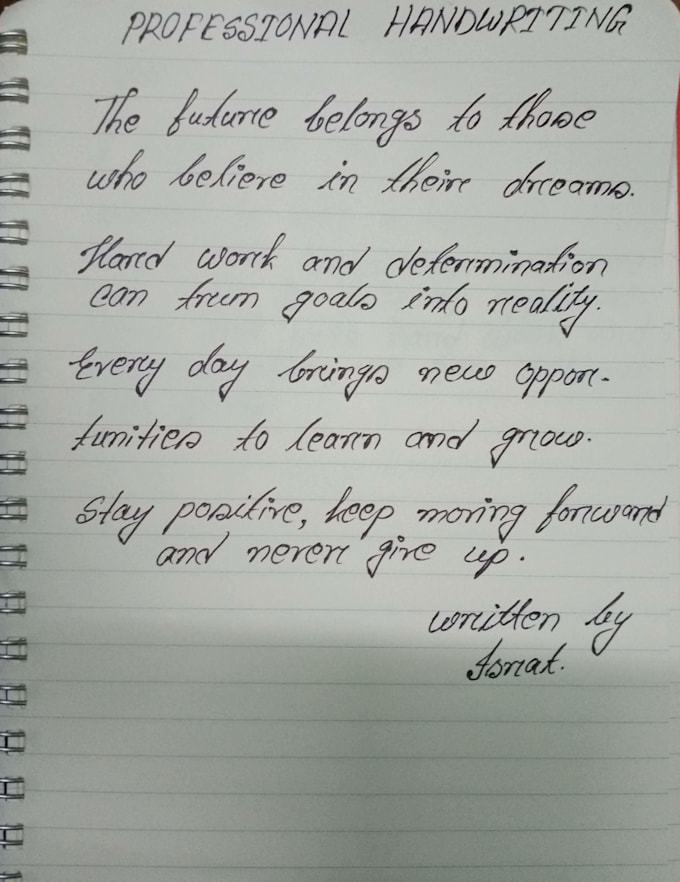 PROFESSIONAL HANDWRITING
The future belongs to those
who believe in their dreams.
Hard work and determination
can trun goals into reality.
Every day brings new oppor-
tunities to learn and grow.
Stay positive, keep moving forward
and never give up.
written by
Israt.